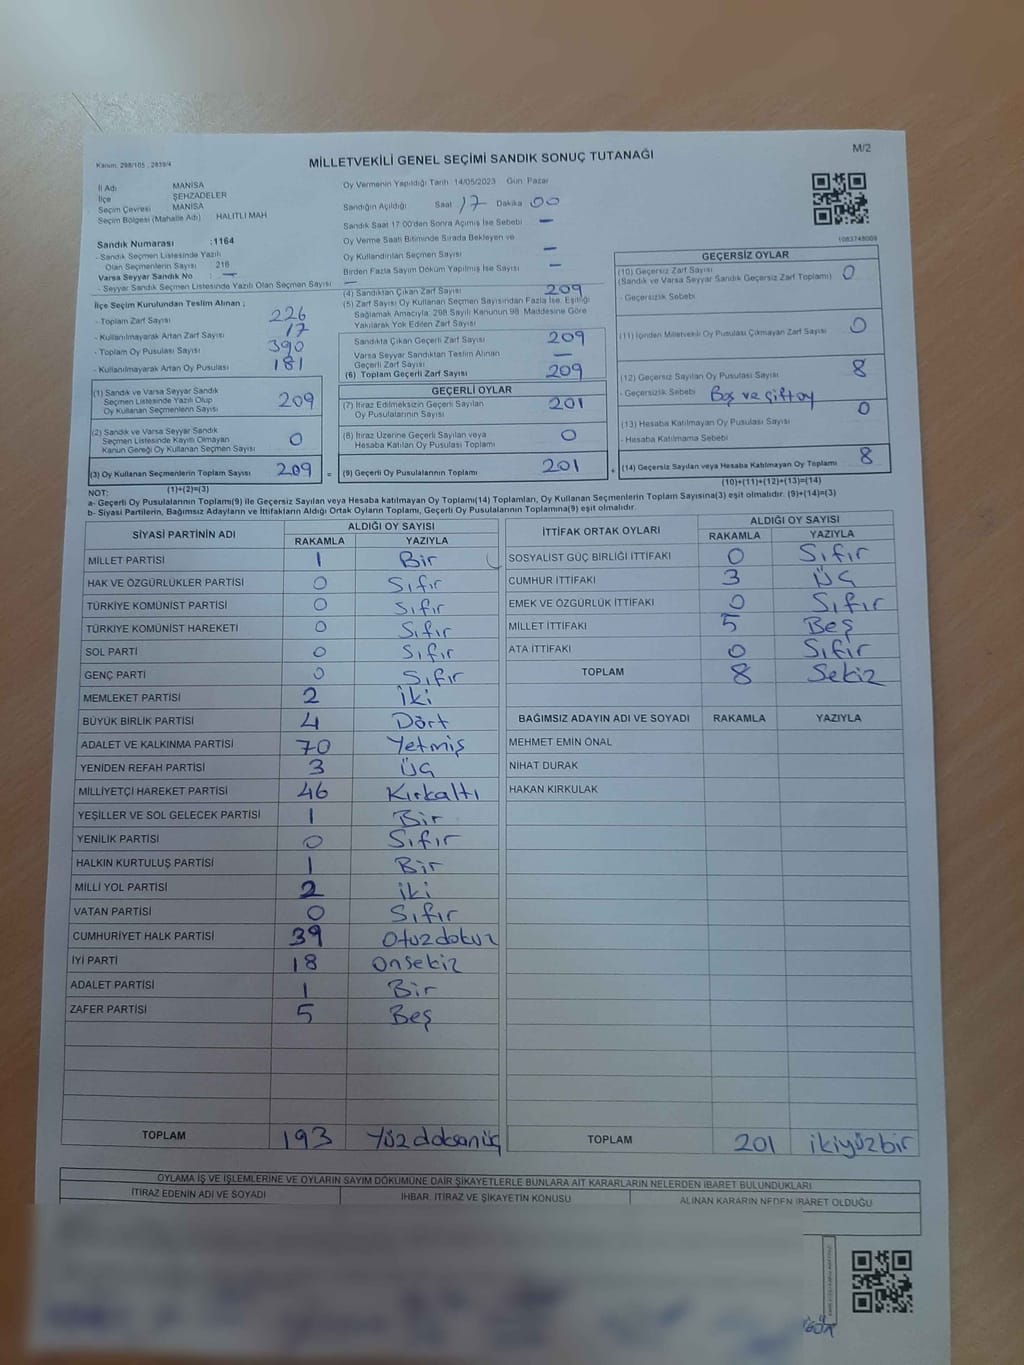 Kanun: 298/105 , 2839/4
MİLLETVEKİLİ GENEL SEÇİMİ SANDIK SONUÇ TUTANAĞI
M/2
İl Adı MANİSA
İlçe ŞEHZADELER
Seçim Çevresi MANİSA
Seçim Bölgesi (Mahalle Adı) HALİTLİ MAH
Sandık Numarası :1164
- Sandık Seçmen Listesinde Yazılı
Olan Seçmenlerin Sayısı : 216
Varsa Seyyar Sandık No : —
- Seyyar Sandık Seçmen Listesinde Yazılı Olan Seçmen Sayısı —
Oy Vermenin Yapıldığı Tarih :14/05/2023 Gün: Pazar
Sandığın Açıldığı Saat 17 Dakika 00
Sandık Saat 17:00'den Sonra Açımış İse Sebebi —
Oy Verme Saati Bitiminde Sırada Bekleyen ve
Oy Kullandırılan Seçmen Sayısı —
Birden Fazla Sayım Döküm Yapılmış İse Sayısı —
1083748009
İlçe Seçim Kurulundan Teslim Alınan ;
- Toplam Zarf Sayısı 226
- Kullanılmayarak Artan Zarf Sayısı 17
- Toplam Oy Pusulası Sayısı 390
- Kullanılmayarak Artan Oy Pusulası 181
(1) Sandık ve Varsa Seyyar Sandık
Seçmen Listesinde Yazılı Olup
Oy Kullanan Seçmenlerin Sayısı 209
(2) Sandık ve Varsa Seyyar Sandık
Seçmen Listesinde Kayıtlı Olmayan
Kanun Gereği Oy Kullanan Seçmen Sayısı 0
(3) Oy Kullanan Seçmenlerin Toplam Sayısı 209 =
(1)+(2)=(3)
(4) Sandıktan Çıkan Zarf Sayısı 209
(5) Zarf Sayısı Oy Kullanan Seçmen Sayısından Fazla İse, Eşitliği
Sağlamak Amacıyla, 298 Sayılı Kanunun 98. Maddesine Göre
Yakılarak Yok Edilen Zarf Sayısı
Sandıkta Çıkan Geçerli Zarf Sayısı 209
Varsa Seyyar Sandıktan Teslim Alınan
Geçerli Zarf Sayısı —
(6) Toplam Geçerli Zarf Sayısı 209
GEÇERLİ OYLAR
(7) İtiraz Edilmeksizin Geçerli Sayılan
Oy Pusulalarının Sayısı 201
(8) İtiraz Üzerine Geçerli Sayılan veya
Hesaba Katılan Oy Pusulası Toplamı 0
(9) Geçerli Oy Pusulalarının Toplamı 201 +
GEÇERSİZ OYLAR
(10) Geçersiz Zarf Sayısı
(Sandık ve Varsa Seyyar Sandık Geçersiz Zarf Toplamı) 0
- Geçersizlik Sebebi
(11) İçinden Milletvekili Oy Pusulası Çıkmayan Zarf Sayısı 0
(12) Geçersiz Sayılan Oy Pusulası Sayısı 8
- Geçersizlik Sebebi Boş ve çift oy
(13) Hesaba Katılmayan Oy Pusulası Sayısı 0
- Hesaba Katılmama Sebebi
(14) Geçersiz Sayılan veya Hesaba Katılmayan Oy Toplamı 8
(10)+(11)+(12)+(13)=(14)
NOT:
a- Geçerli Oy Pusulalarının Toplamı(9) ile Geçersiz Sayılan veya Hesaba katılmayan Oy Toplamı(14) Toplamları, Oy Kullanan Seçmenlerin Toplam Sayısına(3) eşit olmalıdır. (9)+(14)=(3)
b- Siyasi Partilerin, Bağımsız Adayların ve İttifakların Aldığı Oyların Toplamı, Geçerli Oy Pusulalarının Toplamına(9) eşit olmalıdır.
SİYASİ PARTİNİN ADI ALDIĞI OY SAYISI
RAKAMLA YAZIYLA
MİLLET PARTİSİ 1 Bir
HAK VE ÖZGÜRLÜKLER PARTİSİ 0 Sıfır
TÜRKİYE KOMÜNİST PARTİSİ 0 Sıfır
TÜRKİYE KOMÜNİST HAREKETİ 0 Sıfır
SOL PARTİ 0 Sıfır
GENÇ PARTİ 0 Sıfır
MEMLEKET PARTİSİ 2 İki
BÜYÜK BİRLİK PARTİSİ 4 Dört
ADALET VE KALKINMA PARTİSİ 70 Yetmiş
YENİDEN REFAH PARTİSİ 3 Üç
MİLLİYETÇİ HAREKET PARTİSİ 46 Kırkaltı
YEŞİLLER VE SOL GELECEK PARTİSİ 1 Bir
YENİLİK PARTİSİ 0 Sıfır
HALKIN KURTULUŞ PARTİSİ 1 Bir
MİLLİ YOL PARTİSİ 2 İki
VATAN PARTİSİ 0 Sıfır
CUMHURİYET HALK PARTİSİ 39 Otuzdokuz
İYİ PARTİ 18 Onsekiz
ADALET PARTİSİ 1 Bir
ZAFER PARTİSİ 5 Beş
TOPLAM 193 Yüzdoksanüç
İTTİFAK ORTAK OYLARI ALDIĞI OY SAYISI
RAKAMLA YAZIYLA
SOSYALİST GÜÇ BİRLİĞİ İTTİFAKI 0 Sıfır
CUMHUR İTTİFAKI 3 Üç
EMEK VE ÖZGÜRLÜK İTTİFAKI 0 Sıfır
MİLLET İTTİFAKI 5 Beş
ATA İTTİFAKI 0 Sıfır
TOPLAM 8 Sekiz
BAĞIMSIZ ADAYIN ADI VE SOYADI RAKAMLA YAZIYLA
MEHMET EMİN ÖNAL
NİHAT DURAK
HAKAN KIRKULAK
TOPLAM 201 ikiyüzbir
OYLAMA İŞ VE İŞLEMLERİNE VE OYLARIN SAYIM DÖKÜMÜNE DAİR ŞİKAYETLERLE BUNLARA AİT KARARLARIN NELERDEN İBARET BULUNDUKLARI
İTİRAZ EDENİN ADI VE SOYADI İHBAR, İTİRAZ VE ŞİKAYETİN KONUSU ALINAN KARARIN NEDEN İBARET OLDUĞU